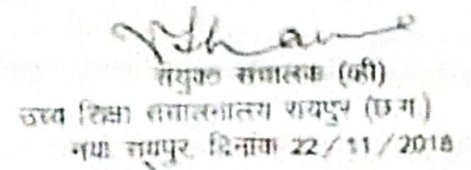 संयुक्त संचालक (व्ही)
उच्च शिक्षा संचालनालय रायपुर (छ.ग.)
नया रायपुर, दिनांक 22/11/2018